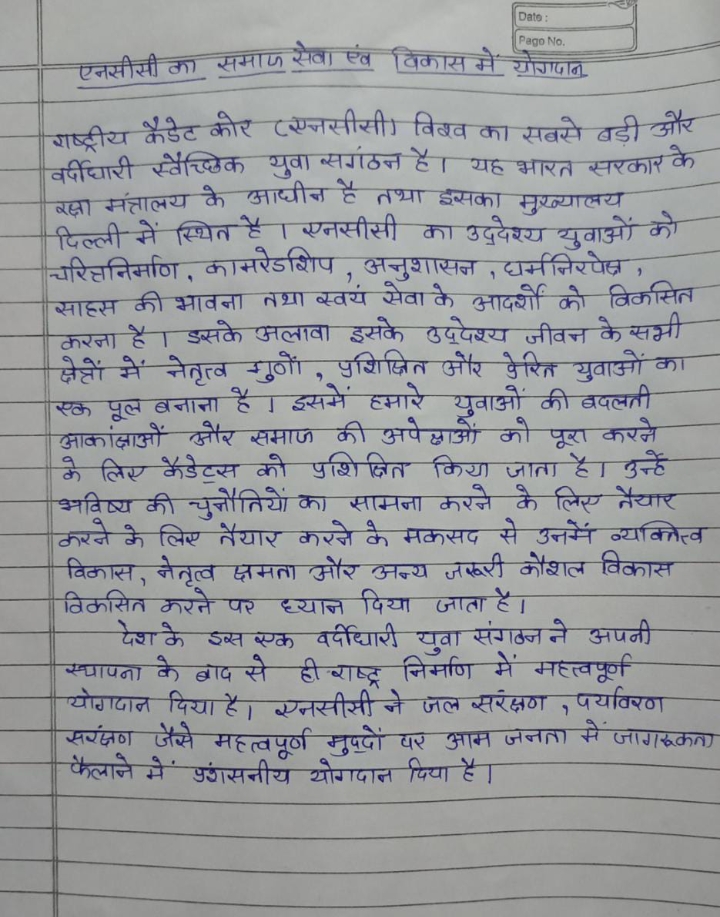 Date :
Page No.
एनसीसी का समाज सेवा एंव विकास में योगदान
राष्ट्रीय कैडेट कोर (एनसीसी) विश्व का सबसे बड़ी और
वर्दीधारी स्वैच्छिक युवा सगंठन है। यह भारत सरकार के
रक्षा मंत्रालय के आधीन है तथा इसका मुख्यालय
दिल्ली में स्थित है। एनसीसी का उद्देश्य युवाओं को
चरित्रनिर्माण, कामरेडशिप, अनुशासन, धर्मनिरपेक्ष,
साहस की भावना तथा स्वयं सेवा के आदर्शों को विकसित
करना है। इसके अलावा इसके उद्देश्य जीवन के सभी
क्षेत्रों में नेतृत्व गुणों, प्रशिक्षित और प्रेरित युवाओं का
एक पूल बनाना है। इसमें हमारे युवाओं की बदलती
आकांक्षाओं और समाज की अपेक्षाओं को पूरा करने
के लिए कैडेट्स को प्रशिक्षित किया जाता है। उन्हें
भविष्य की चुनौतियों का सामना करने के लिए तैयार
करने के लिए तैयार करने के मकसद से उनमें व्यक्तित्व
विकास, नेतृत्व क्षमता और अन्य जरूरी कौशल विकास
विकसित करने पर ध्यान दिया जाता है।
देश के इस एक वर्दीधारी युवा संगठन ने अपनी
स्थापना के बाद से ही राष्ट्र निर्माण में महत्वपूर्ण
योगदान दिया है। एनसीसी ने जल सरंक्षण, पर्यावरण
सरंक्षण जैसे महत्वपूर्ण मुद्दों पर आम जनता में जागरूकता
फैलाने में प्रंशसनीय योगदान दिया है।